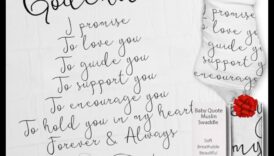 I promise
To love you
To guide you
To support you
To encourage you
To hold you in my heart
Forever & Always
promise
To love you
To guide you
To support
encourage
Baby Quote
Muslin
Swaddle
Soft
Breathable
Beautiful
my